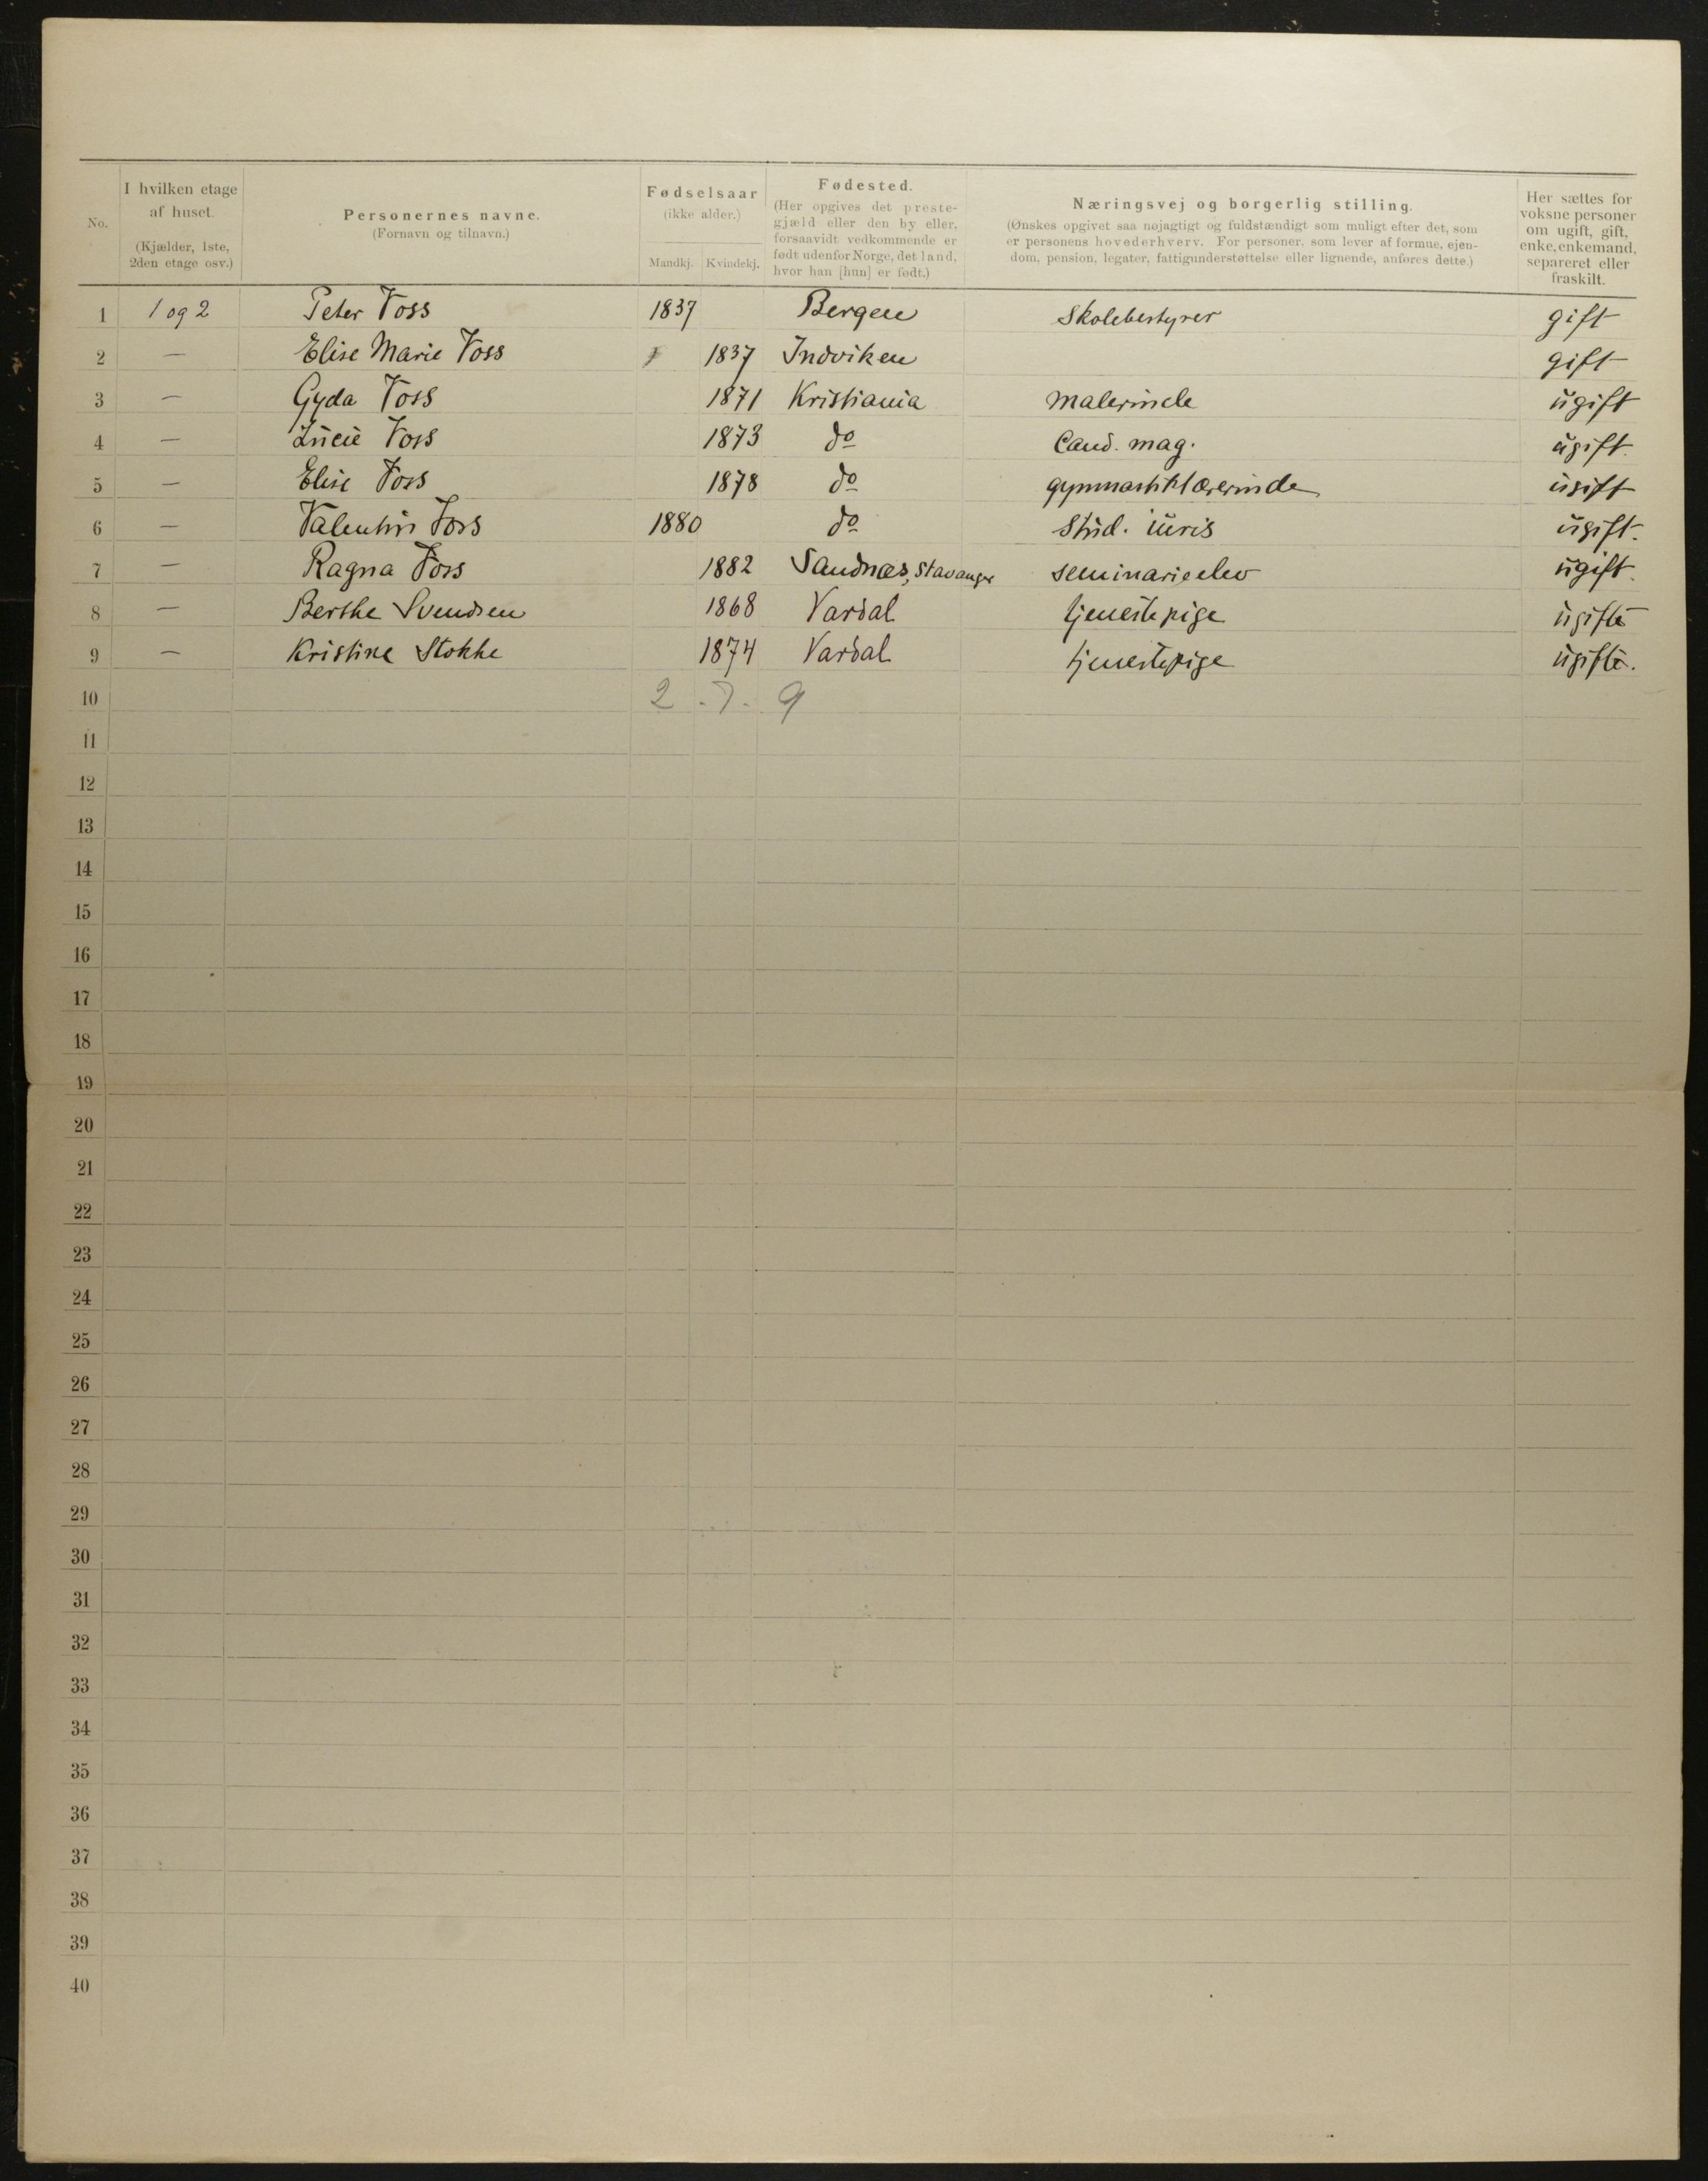 No.
I hvilken etage af huset.
(Kjælder, 1ste, 2den etage osv.)
Personernes navne.
(Fornavn og tilnavn.)
Fødselsaar
(ikke alder.)
Mandkj. Kvindekj.
Fødested.
(Her opgives det prestegjæld eller den by eller, forsaavidt vedkommende er født udenfor Norge, det land, hvor han [hun] er født.)
Næringsvej og borgerlig stilling.
(Ønskes opgivet saa nøjagtigt og fuldstændigt som muligt efter det, som
er personens hovederhverv. For personer, som lever af formue, ejen-
dom, pension, legater, fattigunderstøttelse eller lignende, anføres dette.)
Her sættes for voksne personer om ugift, gift, enke, enkemand, separeret eller fraskilt.
1 1 og 2 Peter Voss 1837 Bergen Skolebestyrer gift
2 — Elise Marie Voss 1837 Indviken gift
3 — Gyda Voss 1871 Kristiania malerinde ugift
4 — Lucie Voss 1873 do Cand. mag. ugift.
5 — Elise Voss 1878 do gymnastiklærerinde ugift
6 — Valentin Voss 1880 do Stud. iuris ugift.
7 — Ragna Voss 1882 Sandnæs, Stavanger seminarieelev ugift.
8 — Berthe Svendsen 1868 Vardal tjenestepige ugift
9 — Kristine Stokke 1874 Vardal tjenestepige ugift.
10 2 . 7 . 9
11
12
13
14
15
16
17
18
19
20
21
22
23
24
25
26
27
28
29
30
31
32
33
34
35
36
37
38
39
40